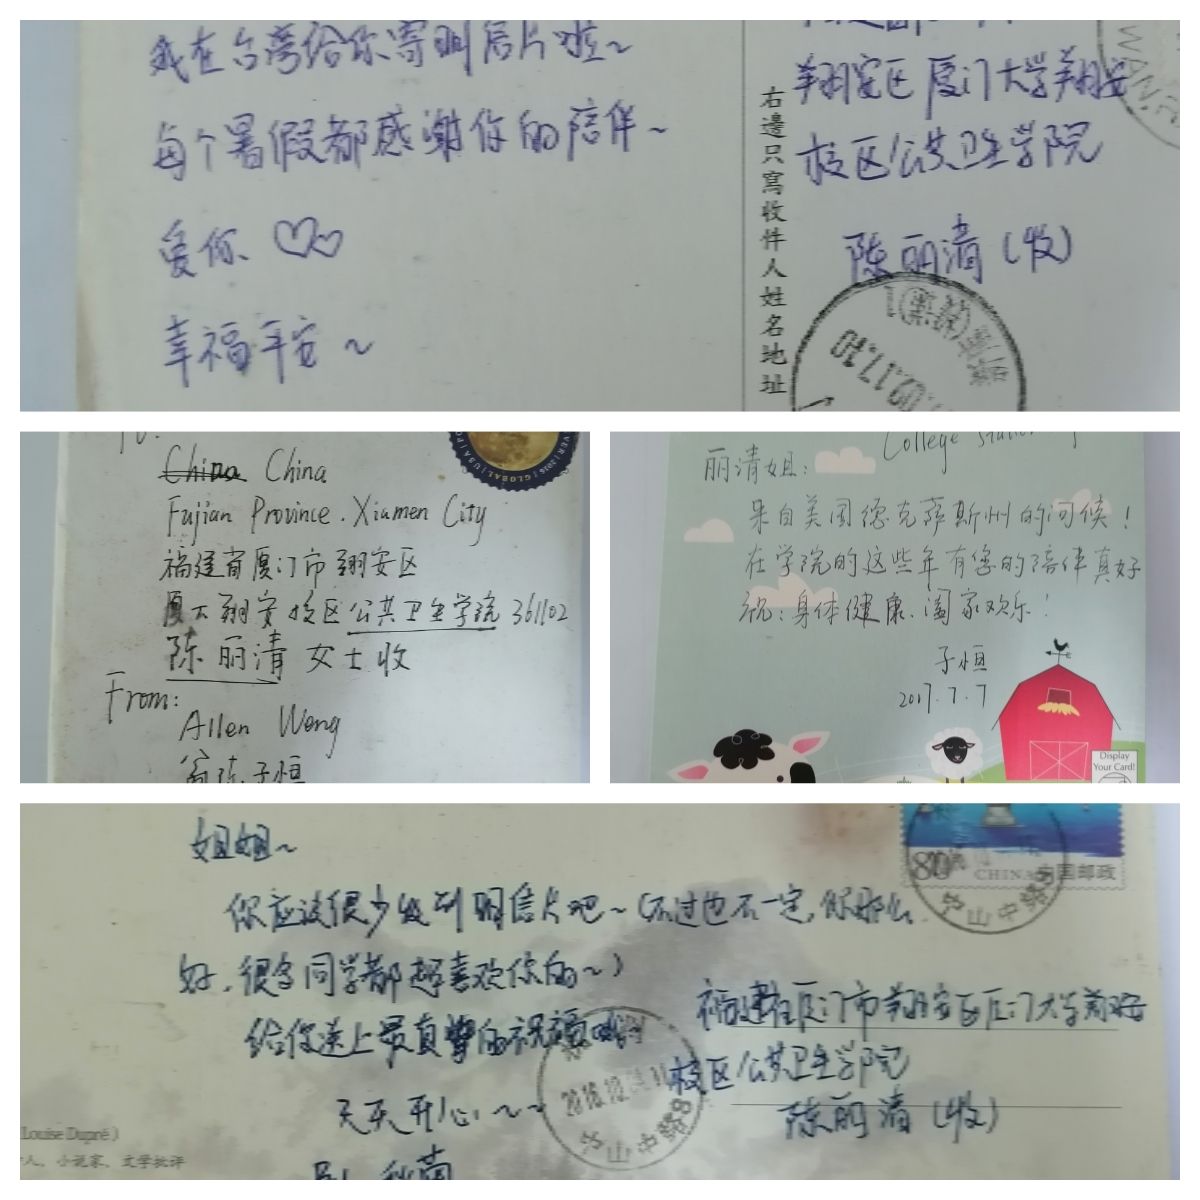 我在台湾给你寄明信片啦~
每个暑假都感谢你的陪伴~
爱你
幸福平安~
右邊只寫收件人姓名地址
翔安区厦门大学翔安
校区公共卫生学院
陈丽清(收)
China China
Fujian Province. Xiamen City
福建省厦门市翔安区
厦大翔安校区公共卫生学院 361102
陈丽清女士收
From:
Allen Weng
子恒
丽清姐:
来自美国德克萨斯州的问候!
在学院的这些年有您的陪伴真好
祝:身体健康、阖家欢乐!
子恒
2017.7.7
Display
Your Card!
姐姐~
你应该很少收到明信片吧~(不过也不一定,你那么
好,很多同学都超喜欢你的~)
给你送上最真挚的祝福
天天开心~~
80
CHINA 中国邮政
福建省厦门市翔安区厦门大学翔安
校区公共卫生学院
陈丽清(收)
Louise Dupré)
人、小说家、文学批评